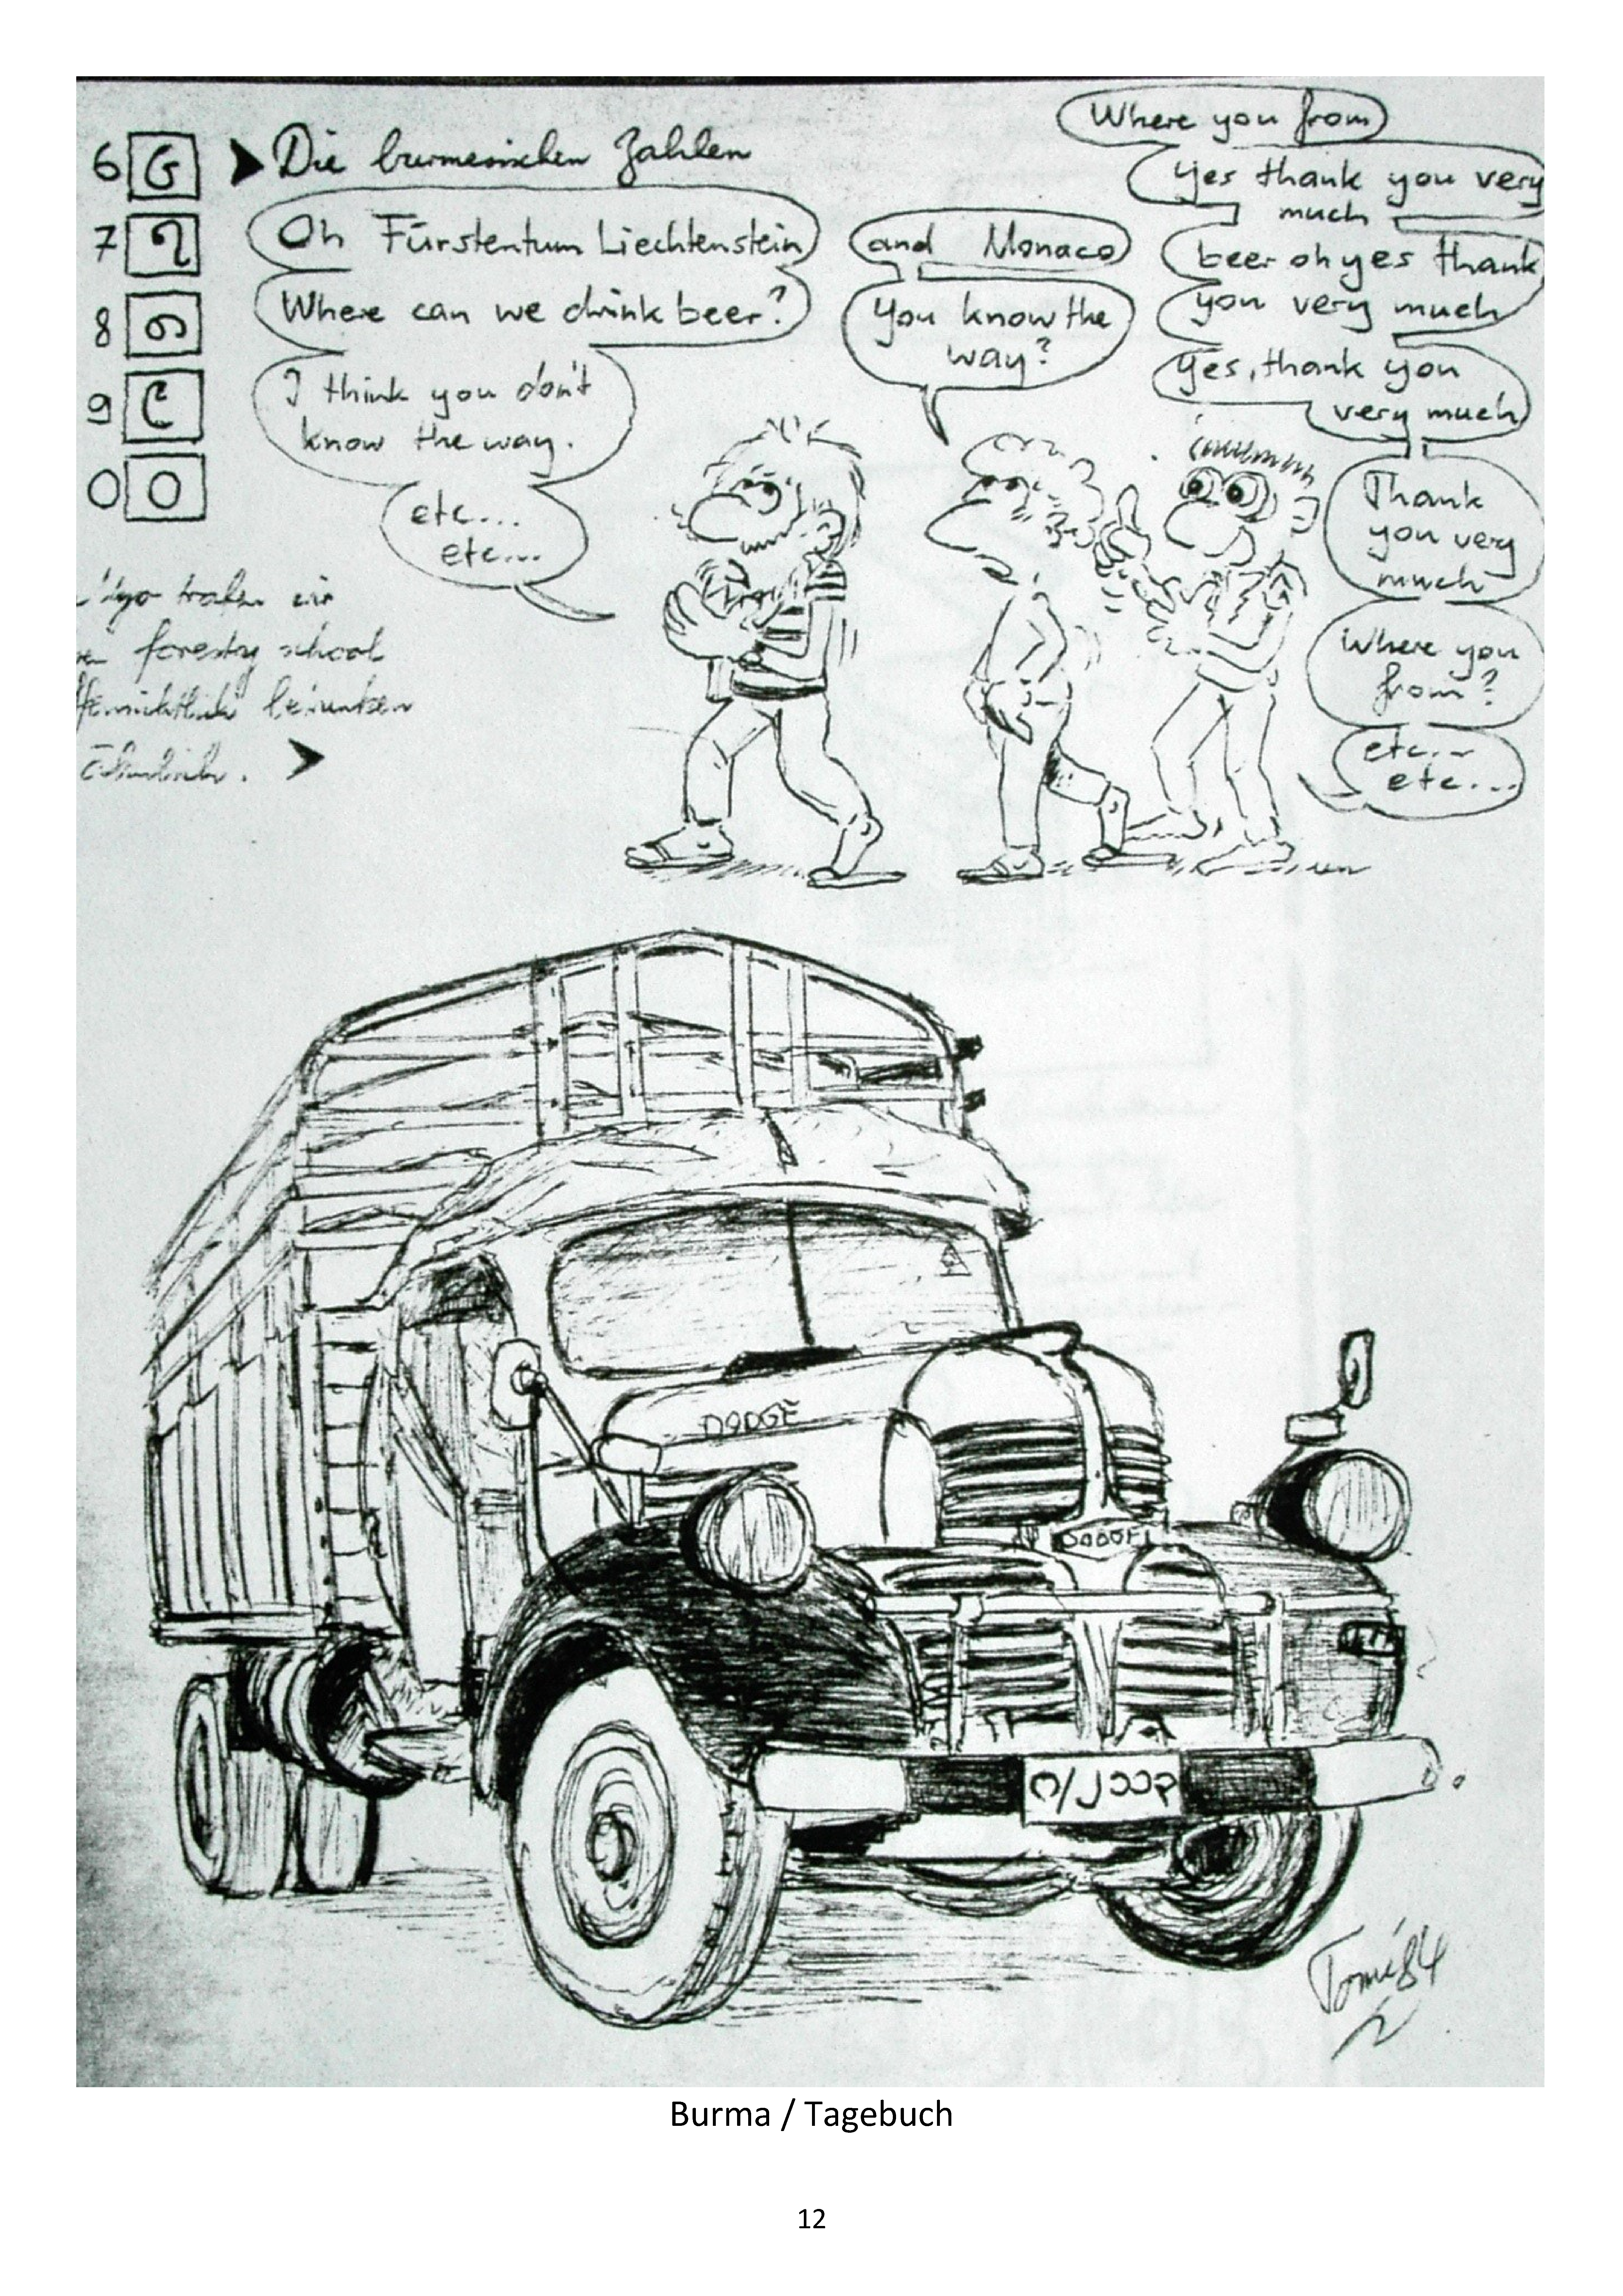 6 ၆
7 ၇
8 ၈
9 ၉
0 ၀
Die burmesischen Zahlen
Oh Fürstentum Liechtenstein
Where can we drink beer?
I think you don't
know the way.
etc...
etc...
and Monaco
You know the
way?
Where you from
Yes thank you very
much
beer oh yes thank
you very much
Yes, thank you
very much
Thank
you very
much
Where you
from?
etc...
etc...
trafen wir
forestry school
betrunken
DODGE
DODGE
Tomi 84
Burma / Tagebuch
12